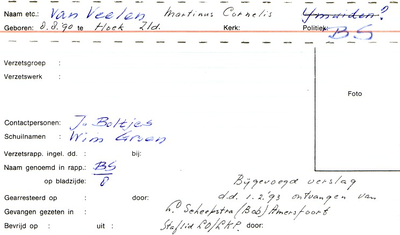 Naam etc.: Van Veelen Martinus Cornelis IJmuiden?
Geboren: 8.8.90 te Hoek Zld. Kerk: Politiek: BS
Verzetsgroep :
Verzetswerk :
Foto
Contactpersonen: J. Boltjes
Schuilnamen : Wim Groen
Verzetsrapp. ingel. dd. : bij:
Naam genoemd in rapp.: BS
op bladzijde: 8
Bijgevoegd verslag
Gearresteerd op : door: d.d. 1.2.'93 ontvangen van
Gevangen gezeten in : Scheepstra (Bob) Amersfoort
Bevrijd op : uit : Staflid LO/LKP. door: